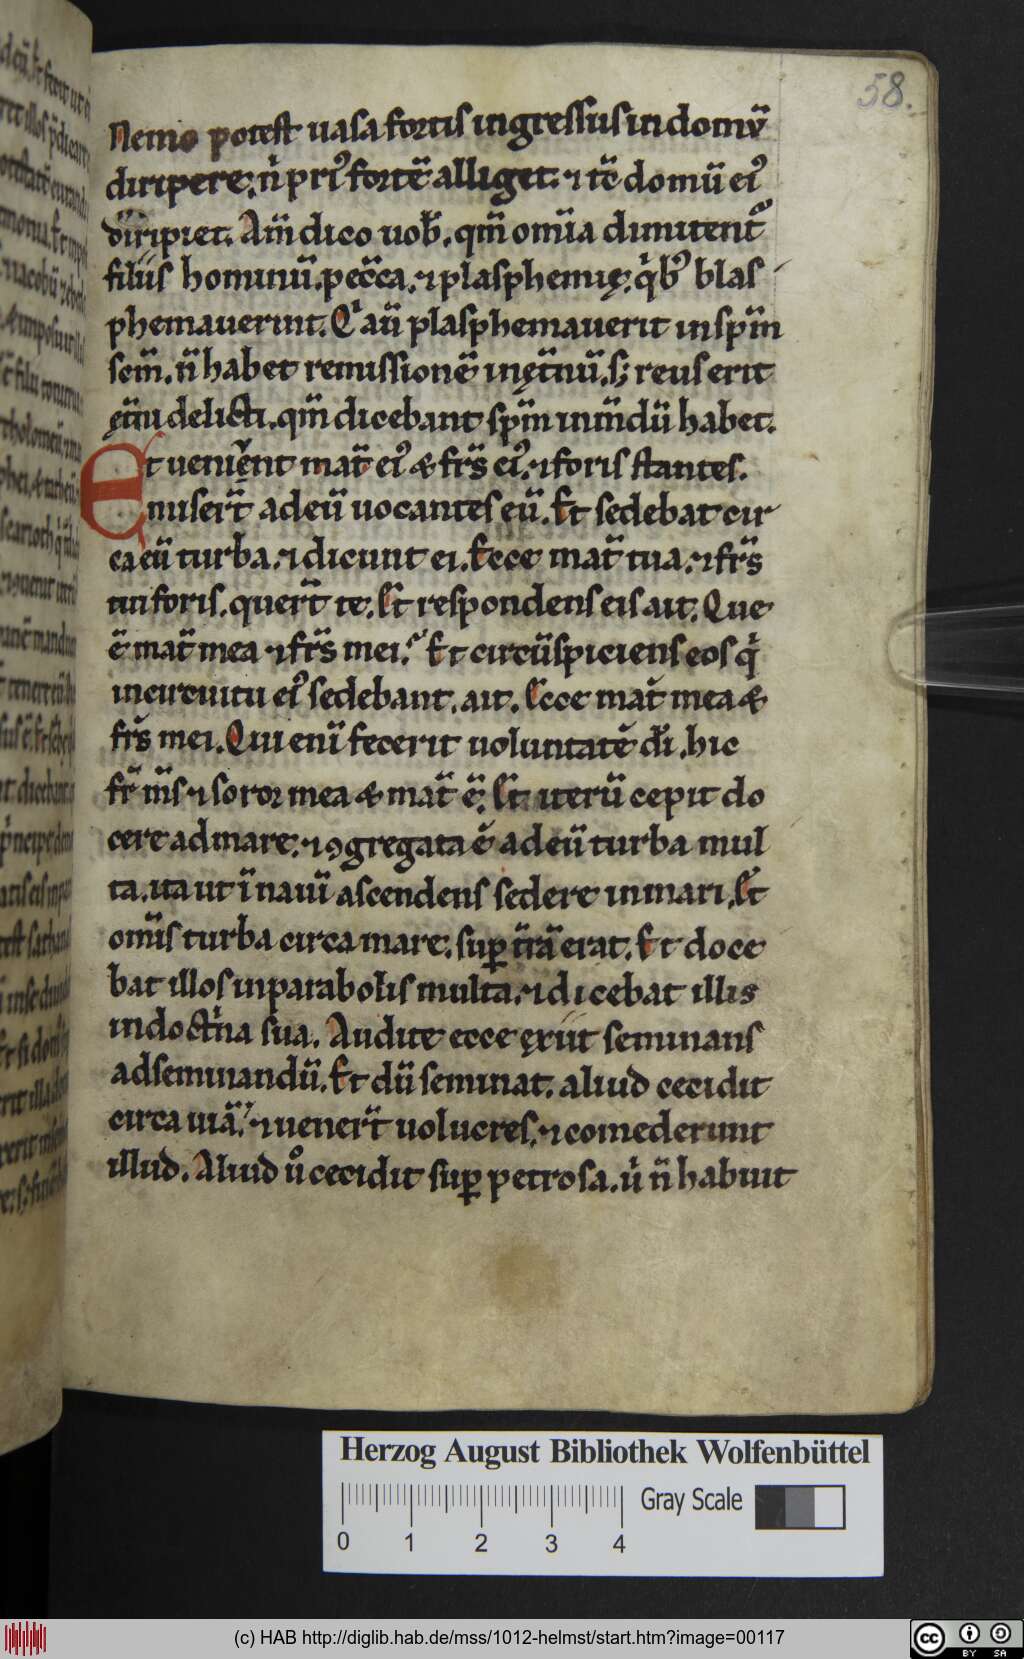 58.
Nemo potest uasa fortis ingressus in domū
diripere. n̄ pri᾽ fortē alliget. ⁊ tc̄ domū ei᾽
diripiet. Am̄ dico uob̄. qm̄ omīa dimittent᾽
filiis hominū. pecc̄a. ⁊ plasphemię. qͥb᾽ blas
phemauerint. Qͥ aū plasphemauerit in spm̄
scm̄. n̄ habet remissionē in ęt̄nū. sꝫ reus erit
ęt̄ni delicti. qm̄ dicebant spm̄ inm̄dū habet.
Et ueniēnt mat̄ ei᾽ & fr̄s ei᾽. ⁊ foris stantes.
miser̄t ad eū uocantes eū. Et sedebat cir
ca eū turba. ⁊ dicunt ei. Ecce mat̄ tua. ⁊ fr̄s
tui foris. quer̄t te. Et respondens eis ait. Que
ē mat̄ mea ⁊ fr̄s mei. Et circūspiciens eos qͥ
in circuitu ei᾽ sedebant. ait. Ecce mat̄ mea &
fr̄s mei. Qui enī fecerit uoluntatē dī. hic
fr̄ m̄s ⁊ soror mea & mat̄ ē. Et iterū cepit do
cere ad mare. ⁊ ꝯgregata ē ad eū turba mul
ta. ita ut ī nauī ascendens sedere in mari. Et
omīs turba circa mare. sup t̄rā erat. Et doce
bat illos in parabolis multa. ⁊ dicebat illis
in doctͥna sua. Audite ecce exiit seminans
ad seminandū. Et dū seminat. aliud cecidit
circa uiā. ⁊ uener̄t uolucres. ⁊ comederunt
illud. Aliud uͦ cecidit sup petrosa. uͥ n̄ habuit
Herzog August Bibliothek Wolfenbüttel
0 1 2 3 4
Gray Scale
(c) HAB http://diglib.hab.de/mss/1012-helmst/start.htm?image=00117
cc BY SA